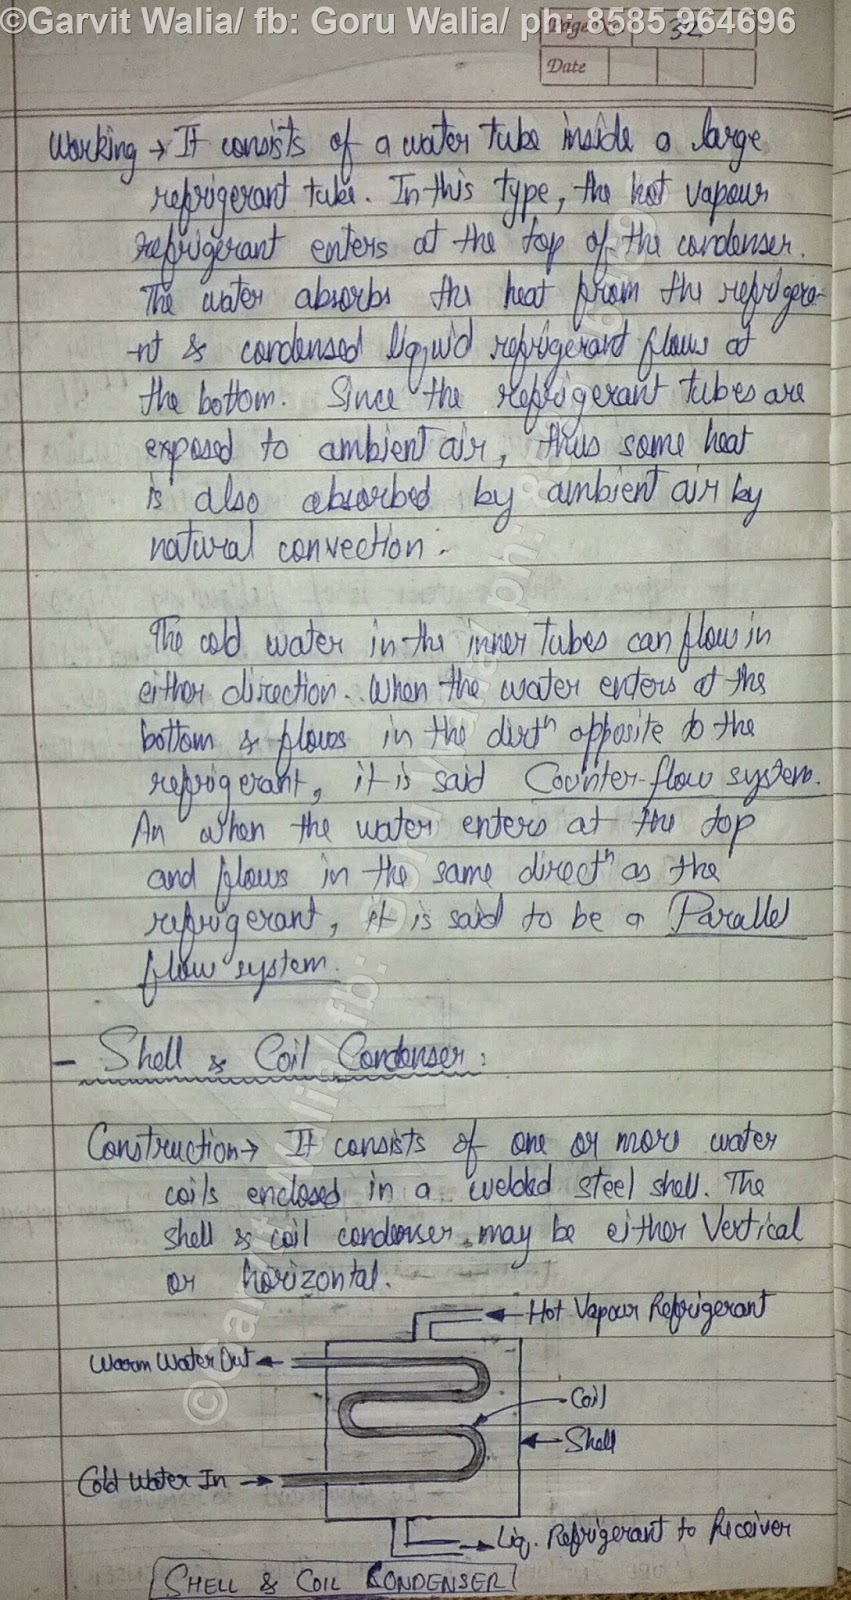 ©Garvit Walia/ fb: Goru Walia/ ph: 8585 964696
Page No. 32
Date
Working → It consists of a water tube inside a large
refrigerant tube. In this type, the hot vapour
refrigerant enters at the top of the condenser.
The water absorbs the heat from the refrigera-
-nt & condensed liquid refrigerant flows at
the bottom. Since the refrigerant tubes are
exposed to ambient air, thus some heat
is also absorbed by ambient air by
natural convection.
The cold water in the inner tubes can flow in
either direction. When the water enters at the
bottom & flows in the dirtⁿ opposite to the
refrigerant, it is said Counter-flow system.
An when the water enters at the top
and flows in the same directⁿ as the
refrigerant, it is said to be a Parallel
flow system.
- Shell & Coil Condenser:
Construction → It consists of one or more water
coils enclosed in a welded steel shell. The
shell & coil condenser may be either Vertical
or horizontal.
Hot Vapour Refrigerant
Warm Water Out
Coil
Shell
Cold Water In
Liq. Refrigerant to Receiver
SHELL & COIL CONDENSER